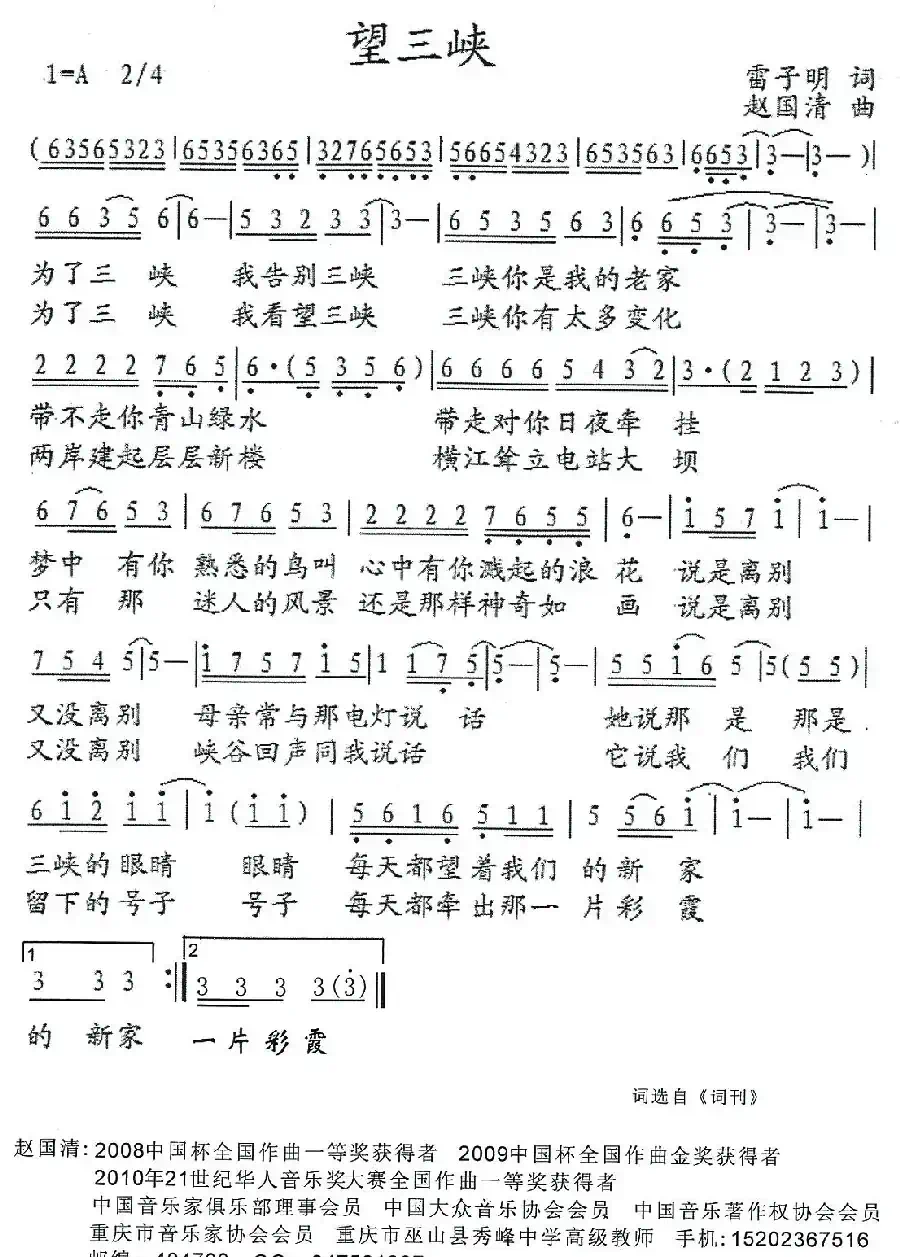 望三峡
1=A 2/4
雷子明 词
赵国清 曲
(63565323|65356365|32765653|56654323|65356 3|6653|3—|3—)|
6 6 3 5 6|6—|5 3 2 3 3|3—|6 5 3 5 6 3|6 6 5 3|3—|3—|
为了三 峡 我告别三峡 三峡你是我的老家
为了三 峡 我看望三峡 三峡你有太多变化
2 2 2 2 7 6 5|6·(5 3 5 6)|6 6 6 6 5 4 3 2|3·(2 1 2 3)|
带不走你青山绿水 带走对你日夜牵 挂
两岸建起层层新楼 横江耸立电站大 坝
6 7 6 5 3|6 7 6 5 3|2 2 2 2 7 6 5 5|6—|i 5 7 i|i—|
梦中 有你 熟悉的鸟叫 心中有你溅起的浪 花 说是离别
只有 那 迷人的风景 还是那样神奇如 画 说是离别
7 5 4 5|5—|i 7 5 7 i 5|1 1 7 5|5—|5—|5 5 i 6 5|5(5 5)|
又没离别 母亲常与那电灯说 话 她说那 是 那是
又没离别 峡谷回声同我说话 它说我 们 我们
6 i 2 i i|i (i i)|5 6 1 6 5 1 1|5 5 6 i|i—|i—|
三峡的眼睛 眼睛 每天都望着我们 的新 家
留下的号子 号子 每天都牵出那一 片彩 霞
1 2
3 3 3 :‖ 3 3 3 3(3)‖
的 新家 一片彩霞
词选自《词刊》
赵国清: 2008中国杯全国作曲一等奖获得者 2009中国杯全国作曲金奖获得者
2010年21世纪华人音乐奖大赛全国作曲一等奖获得者
中国音乐家俱乐部理事会员 中国大众音乐协会会员 中国音乐著作权协会会员
重庆市音乐家协会会员 重庆市巫山县秀峰中学高级教师 手机:15202367516